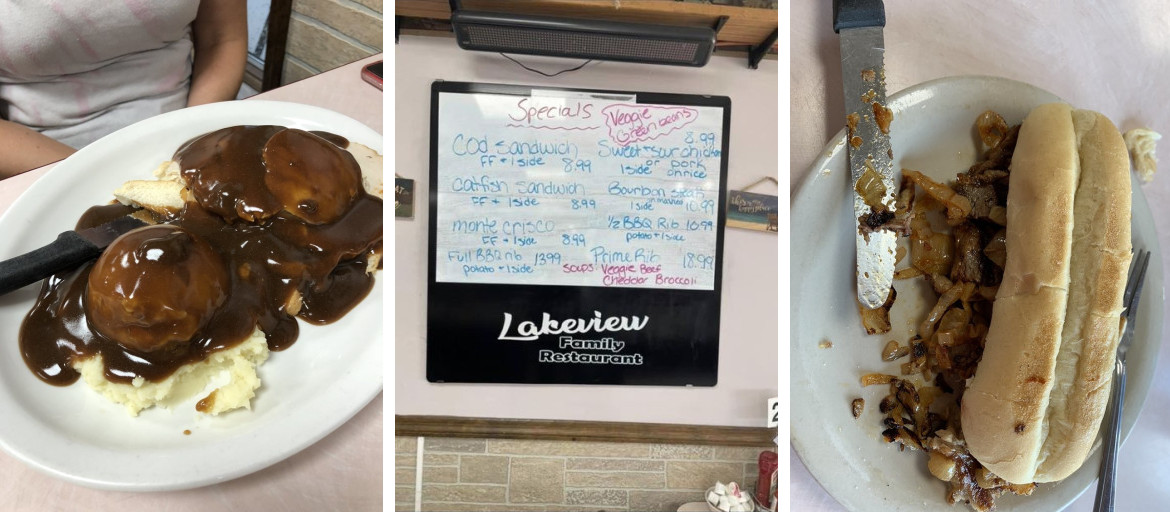 Specials
Veggie
Green beans
Cod sandwich
FF + 1 side 8.99
catfish sandwich
FF + 1 side 8.99
monte crisco
FF + 1 side 8.99
Full BBQ rib 13.99
potato + 1 side
8.99
Sweet + sour chicken
or pork
1 side on rice
Bourbon steak
on mashed
1 side 10.99
1/2 BBQ Rib 10.99
potato + 1 side
Prime Rib 18.99
soups: Veggie Beef
Cheddar Broccoli
Lakeview
Family
Restaurant
2